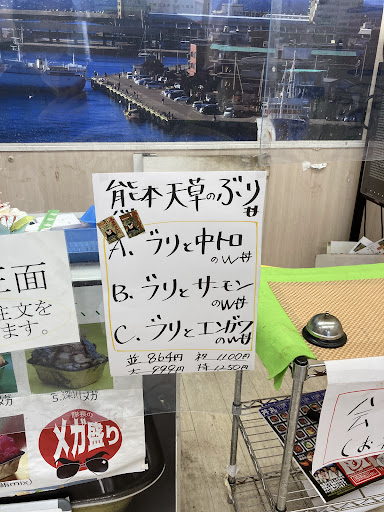 熊本天草のぶり丼
A. ブリと中トロ
のW丼
B. ブリとサーモン
のW丼
C. ブリとエンガワ
のW丼
並 864円 礼 1100円
大 999円 特 1250円
正面
注文を
ます。
5.深川メガ
メガ盛り